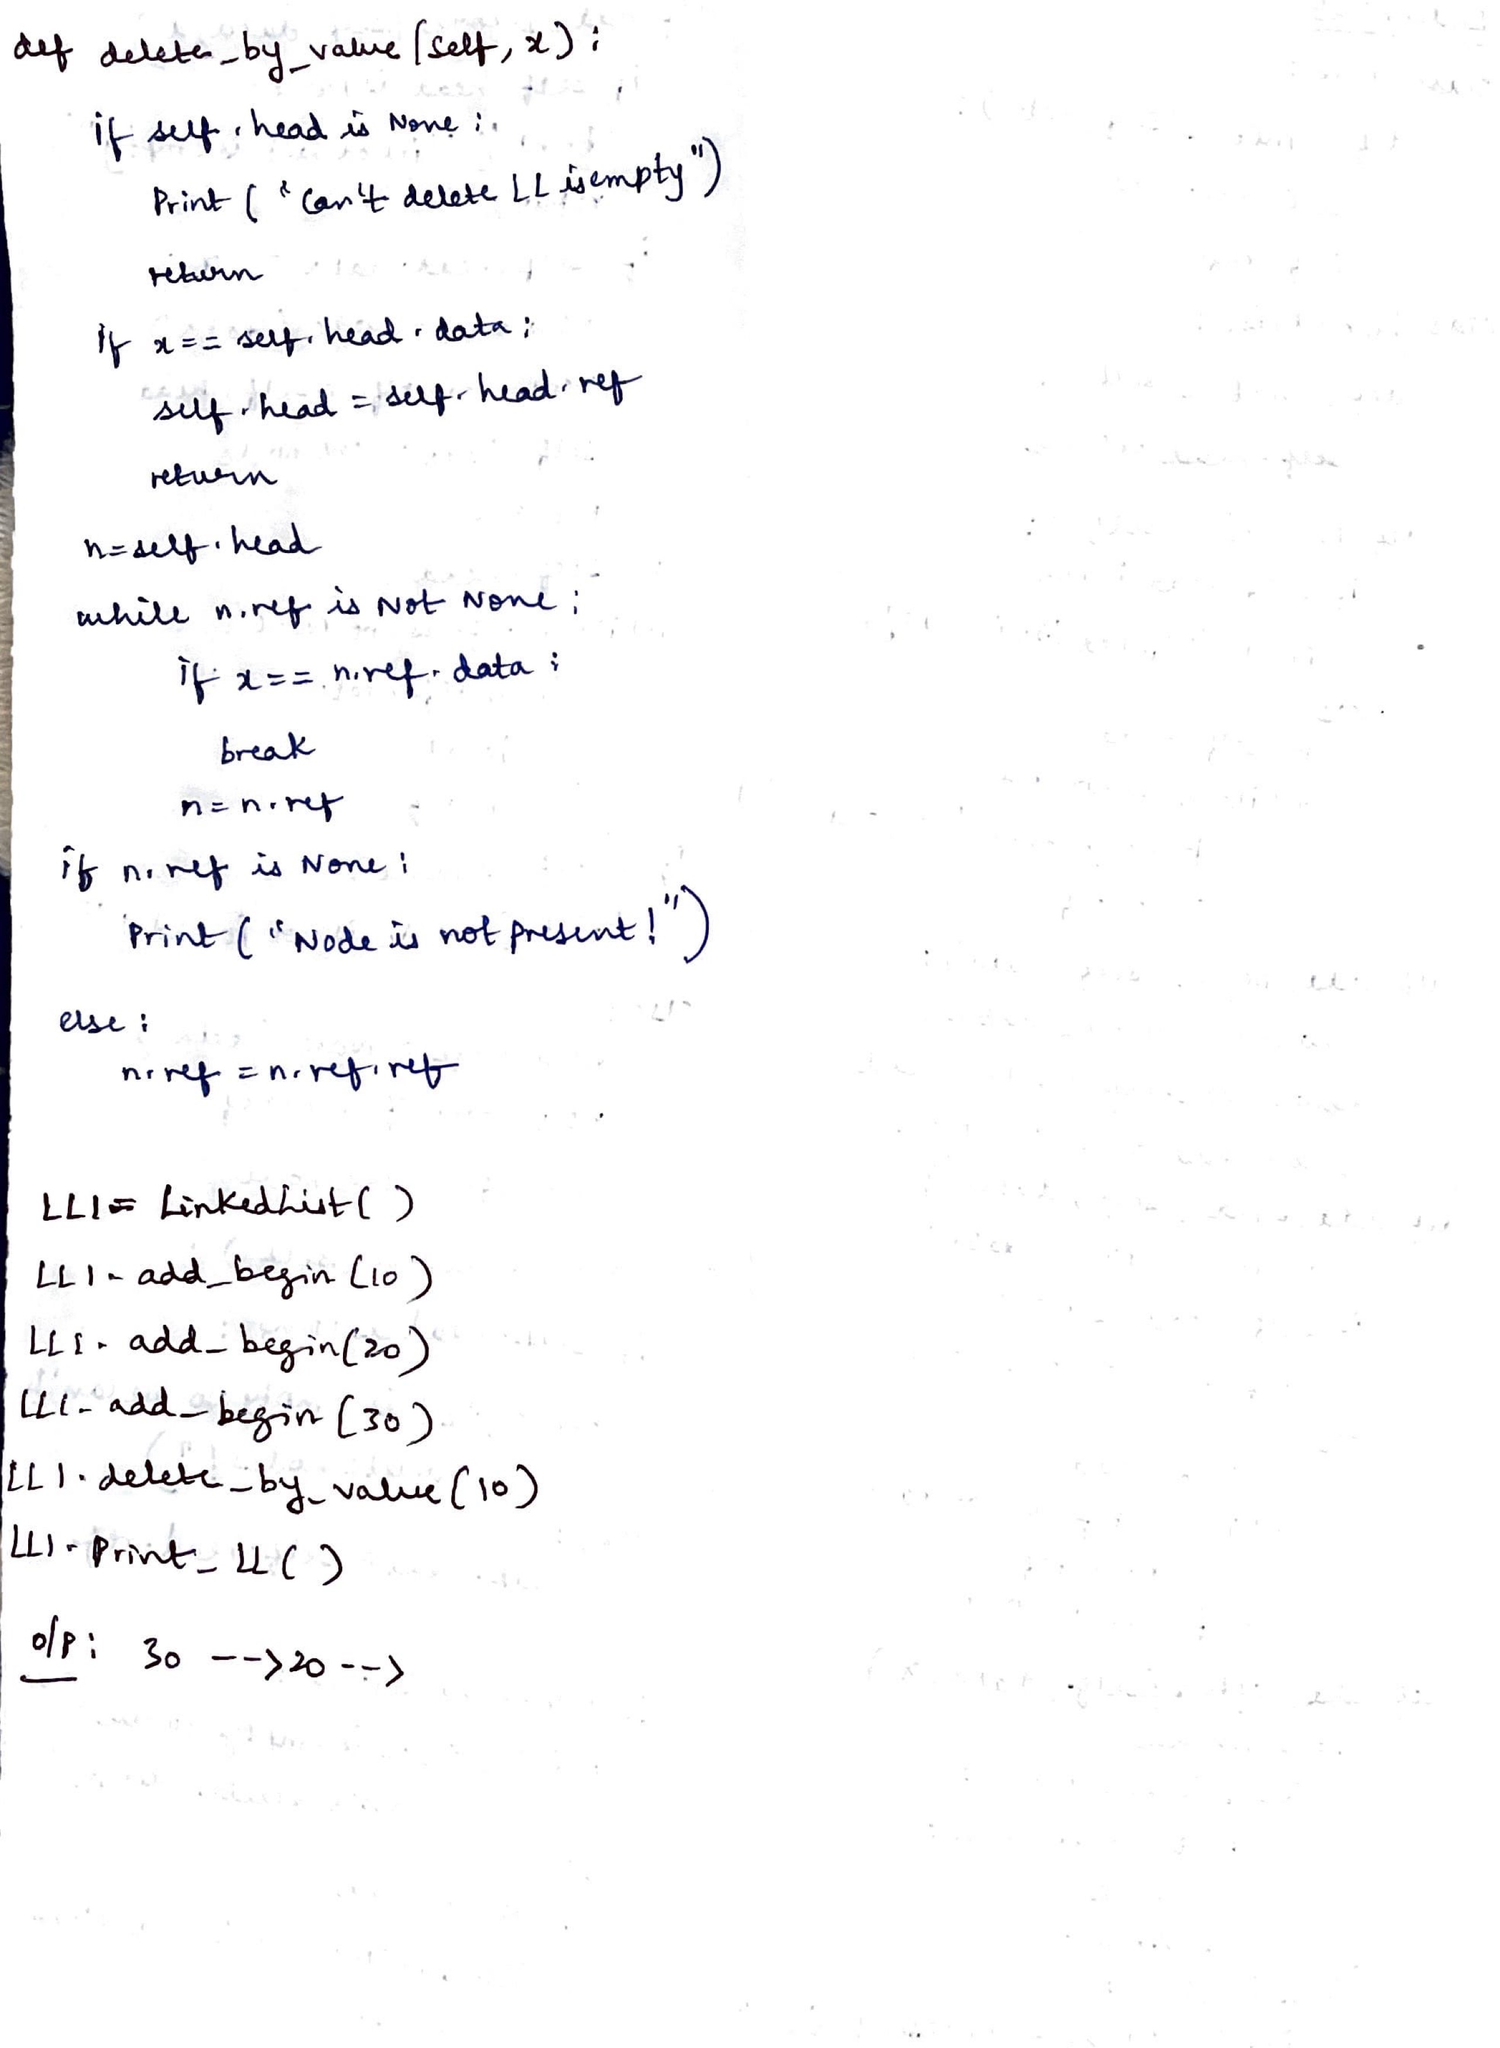 def delete_by_value (self, x) :
if self.head is None :
Print ("Can't delete LL is empty")
return
if x == self.head.data :
self.head = self.head.ref
return
n = self.head
while n.ref is Not None :
if x == n.ref.data :
break
n = n.ref
if n.ref is None :
Print ("Node is not present!")
else :
n.ref = n.ref.ref
LL1 = LinkedList( )
LL1. add_begin (10)
LL1. add_begin(20)
LL1. add_begin (30)
LL1. delete_by_value (10)
LL1. Print_LL( )
o/p : 30 --> 20 -->